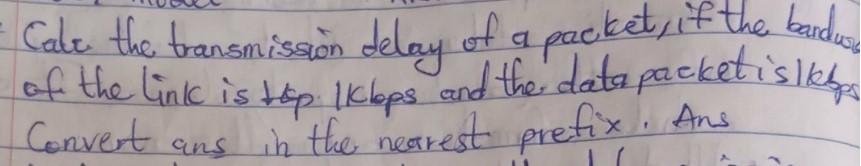 Calc the transmission delay of a packet, if the
of the link is 1Kbps and the data packet is 1kbps
Convert ans in the nearest prefix. Ans